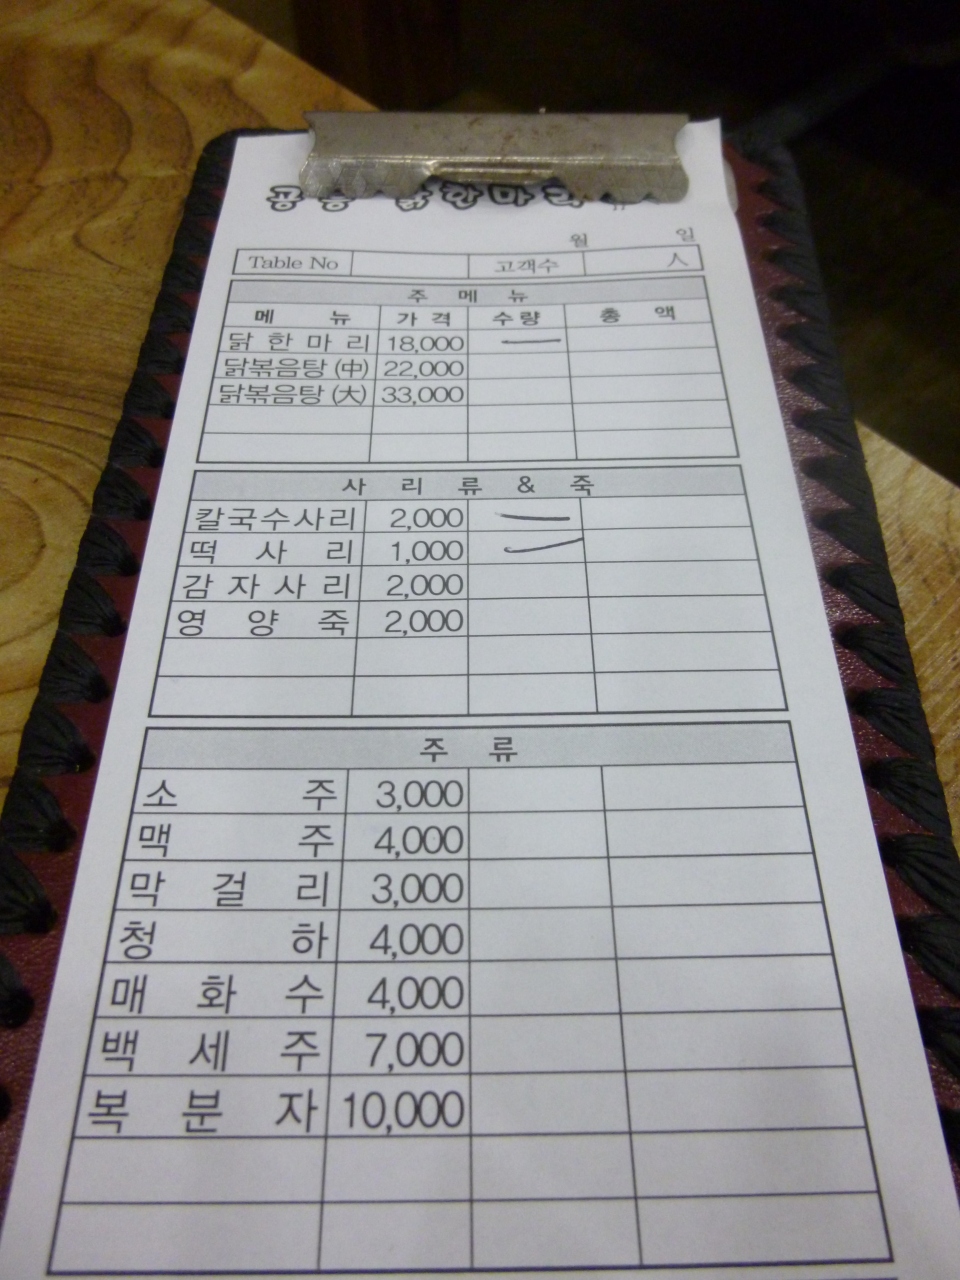 공릉 닭한마리
월 일
Table No 고객수 人
주 메 뉴
메 뉴 가 격 수량 총 액
닭 한 마 리 18,000 一
닭볶음탕 (中) 22,000
닭볶음탕 (大) 33,000
사 리 류 & 죽
칼국수사리 2,000 一
떡 사 리 1,000 一
감 자 사 리 2,000
영 양 죽 2,000
주 류
소 주 3,000
맥 주 4,000
막 걸 리 3,000
청 하 4,000
매 화 수 4,000
백 세 주 7,000
복 분 자 10,000